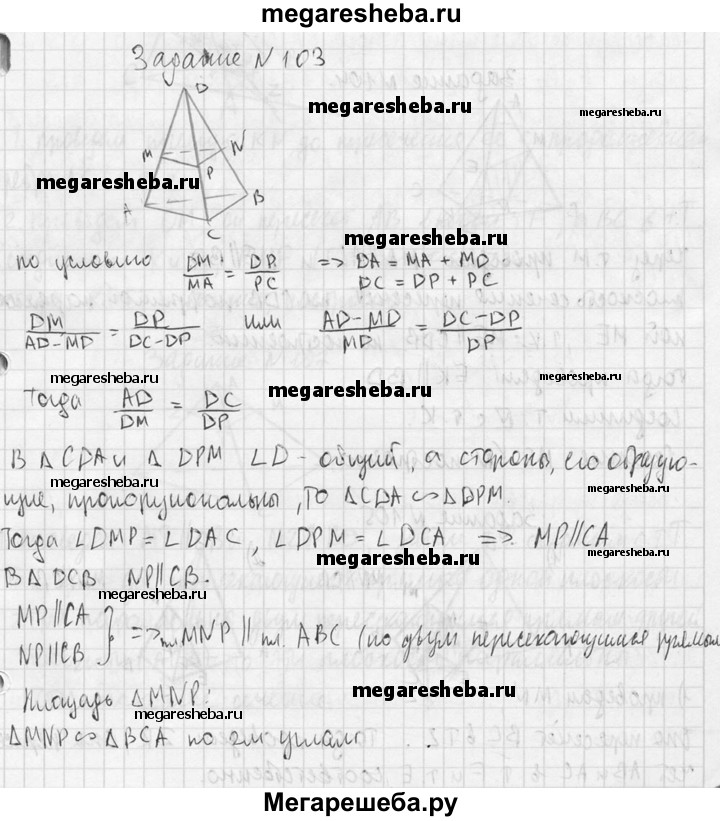 megaresheba.ru
Задание N 103
D
megaresheba.ru
megaresheba.ru
M N
P
megaresheba.ru
A B
C
megaresheba.ru
по условию DM/MA = DP/PC => DA = MA + MD
DC = DP + PC
DM/AD-MD = DP/DC-DP или AD-MD/MD = DC-DP/DP
megaresheba.ru
megaresheba.ru
megaresheba.ru
Тогда AD/DM = DC/DP
В Δ CDA и Δ DPM ∠D - общий, а стороны, его образую-
megaresheba.ru
megaresheba.ru
щие, пропорциональны, то ΔCDA ∽ ΔDPM.
Тогда ∠DMP = ∠DAC, ∠DPM = ∠DCA => MP||CA
megaresheba.ru
megaresheba.ru
В Δ DCB NP||CB.
megaresheba.ru
MP||CA
NP||CB } => пл. MNP || пл. ABC (по двум пересекающимся прямым
megaresheba.ru
megaresheba.ru
Площадь ΔMNP:
megaresheba.ru
megaresheba.ru
ΔMNP ∽ ΔBCA по 2м углам.
Мегарешеба.ру